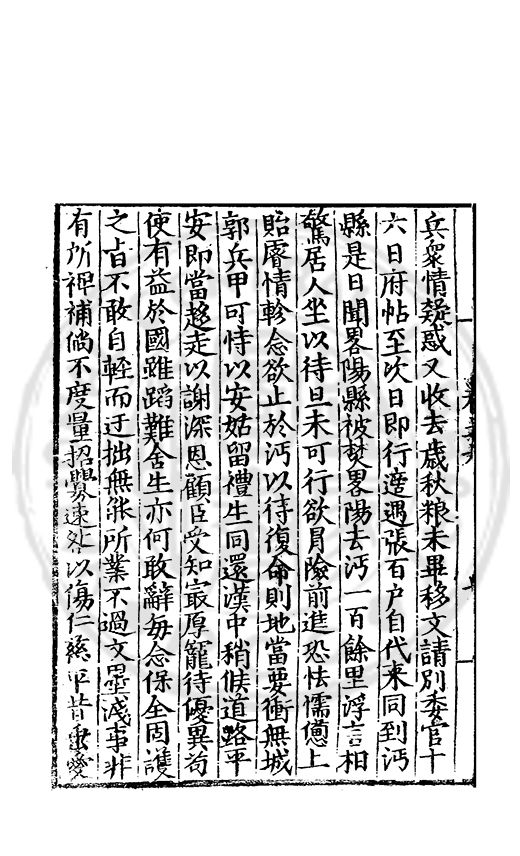 兵衆情疑惑又收去歲秋粮未畢移文請別委官十
六日府帖至次日即行適遇張百户自代來同到沔
縣是日聞畧陽縣被焚畧陽去沔一百餘里浮言相
驚居人坐以待旦未可行欲冐險前進恐怯懦憊上
貽睿情軫念欲止於沔以待復命則地當要衝無城
郭兵甲可恃以安姑留禮生同還漢中稍候道路平
安即當趍走以謝深恩顧臣受知寂厚寵待優異茍
使有益於國雖蹈難舍生亦何敢辭每念保全固護
之旨不敢自輕而迂拙無能所業不過文墨淺事非
有所裨補倘不度量招釁速咎以傷仁慈平昔重愛